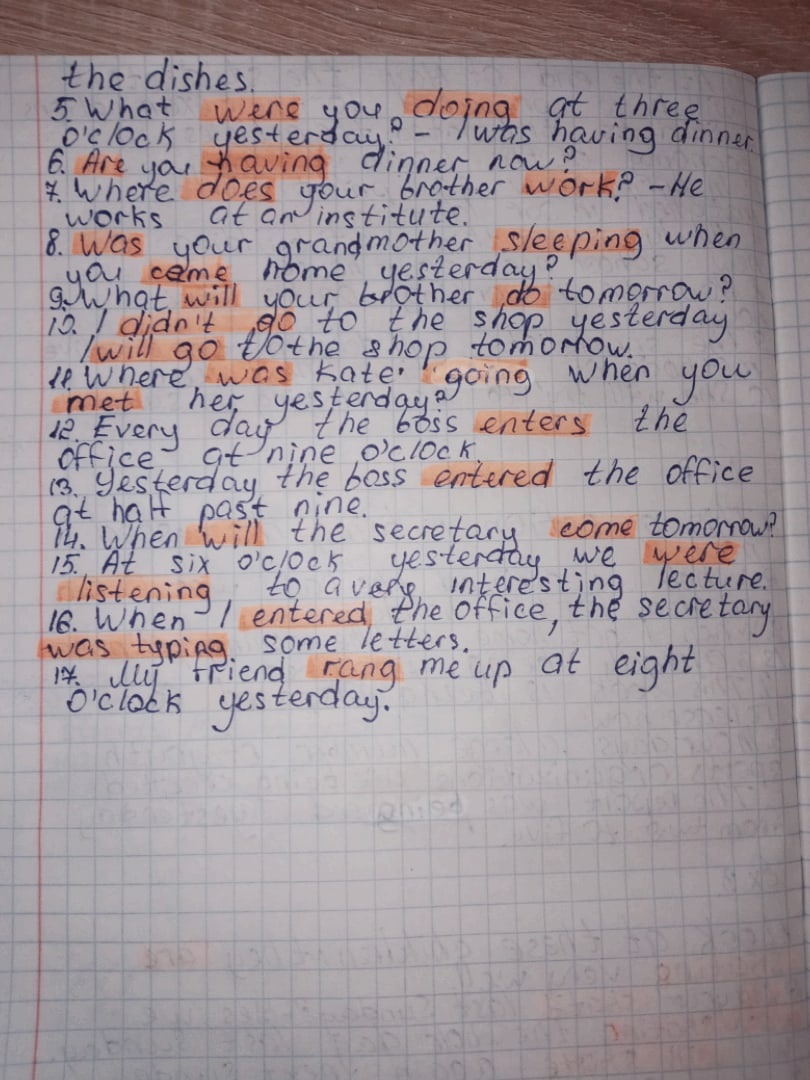 the dishes.
5. What were you doing at three
o'clock yesterday? - I was having dinner.
6. Are you having dinner now?
7. Where does your brother work? - He
works at an institute.
8. Was your grandmother sleeping when
you came home yesterday?
9. What will your brother do tomorrow?
10. I didn't go to the shop yesterday
I will go to the shop tomorrow.
11. Where was Kate going when you
met her yesterday?
12. Every day the boss enters the
office at nine o'clock.
13. Yesterday the boss entered the office
at half past nine.
14. When will the secretary come tomorrow?
15. At six o'clock yesterday we were
listening to a very interesting lecture.
16. When I entered the office, the secretary
was typing some letters.
17. My friend rang me up at eight
o'clock yesterday.